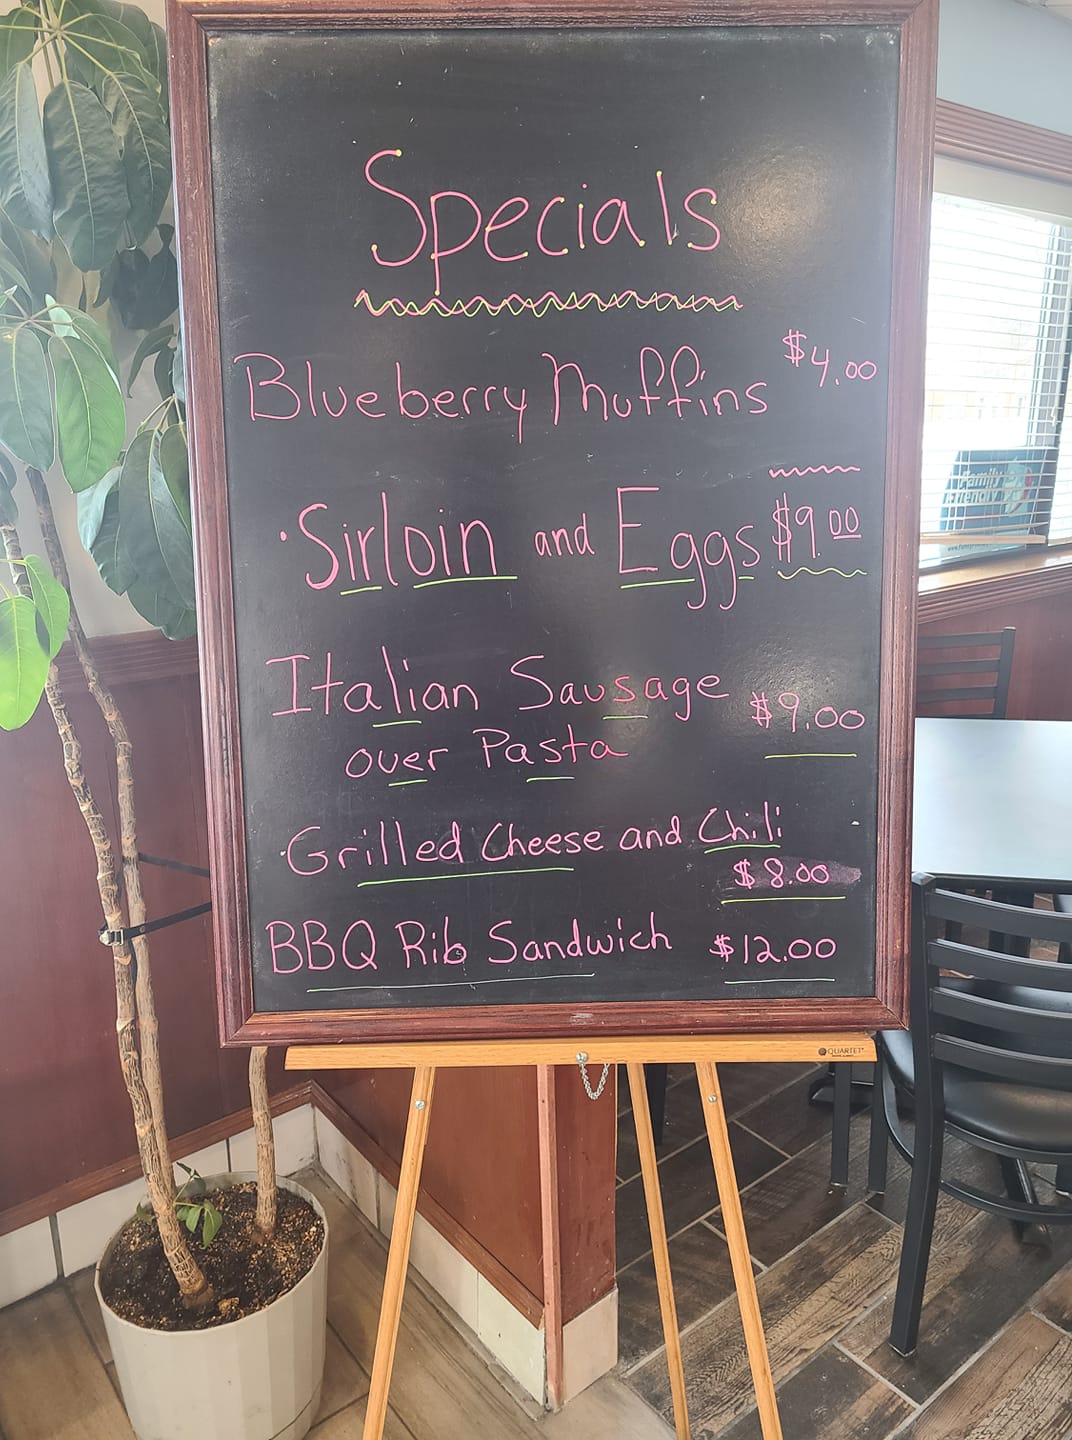 Specials
Blueberry Muffins $4.00
·Sirloin and Eggs $9.00
Italian Sausage
over Pasta $9.00
·Grilled Cheese and Chili
$8.00
BBQ Rib Sandwich $12.00
QUARTET
Family
Friendly